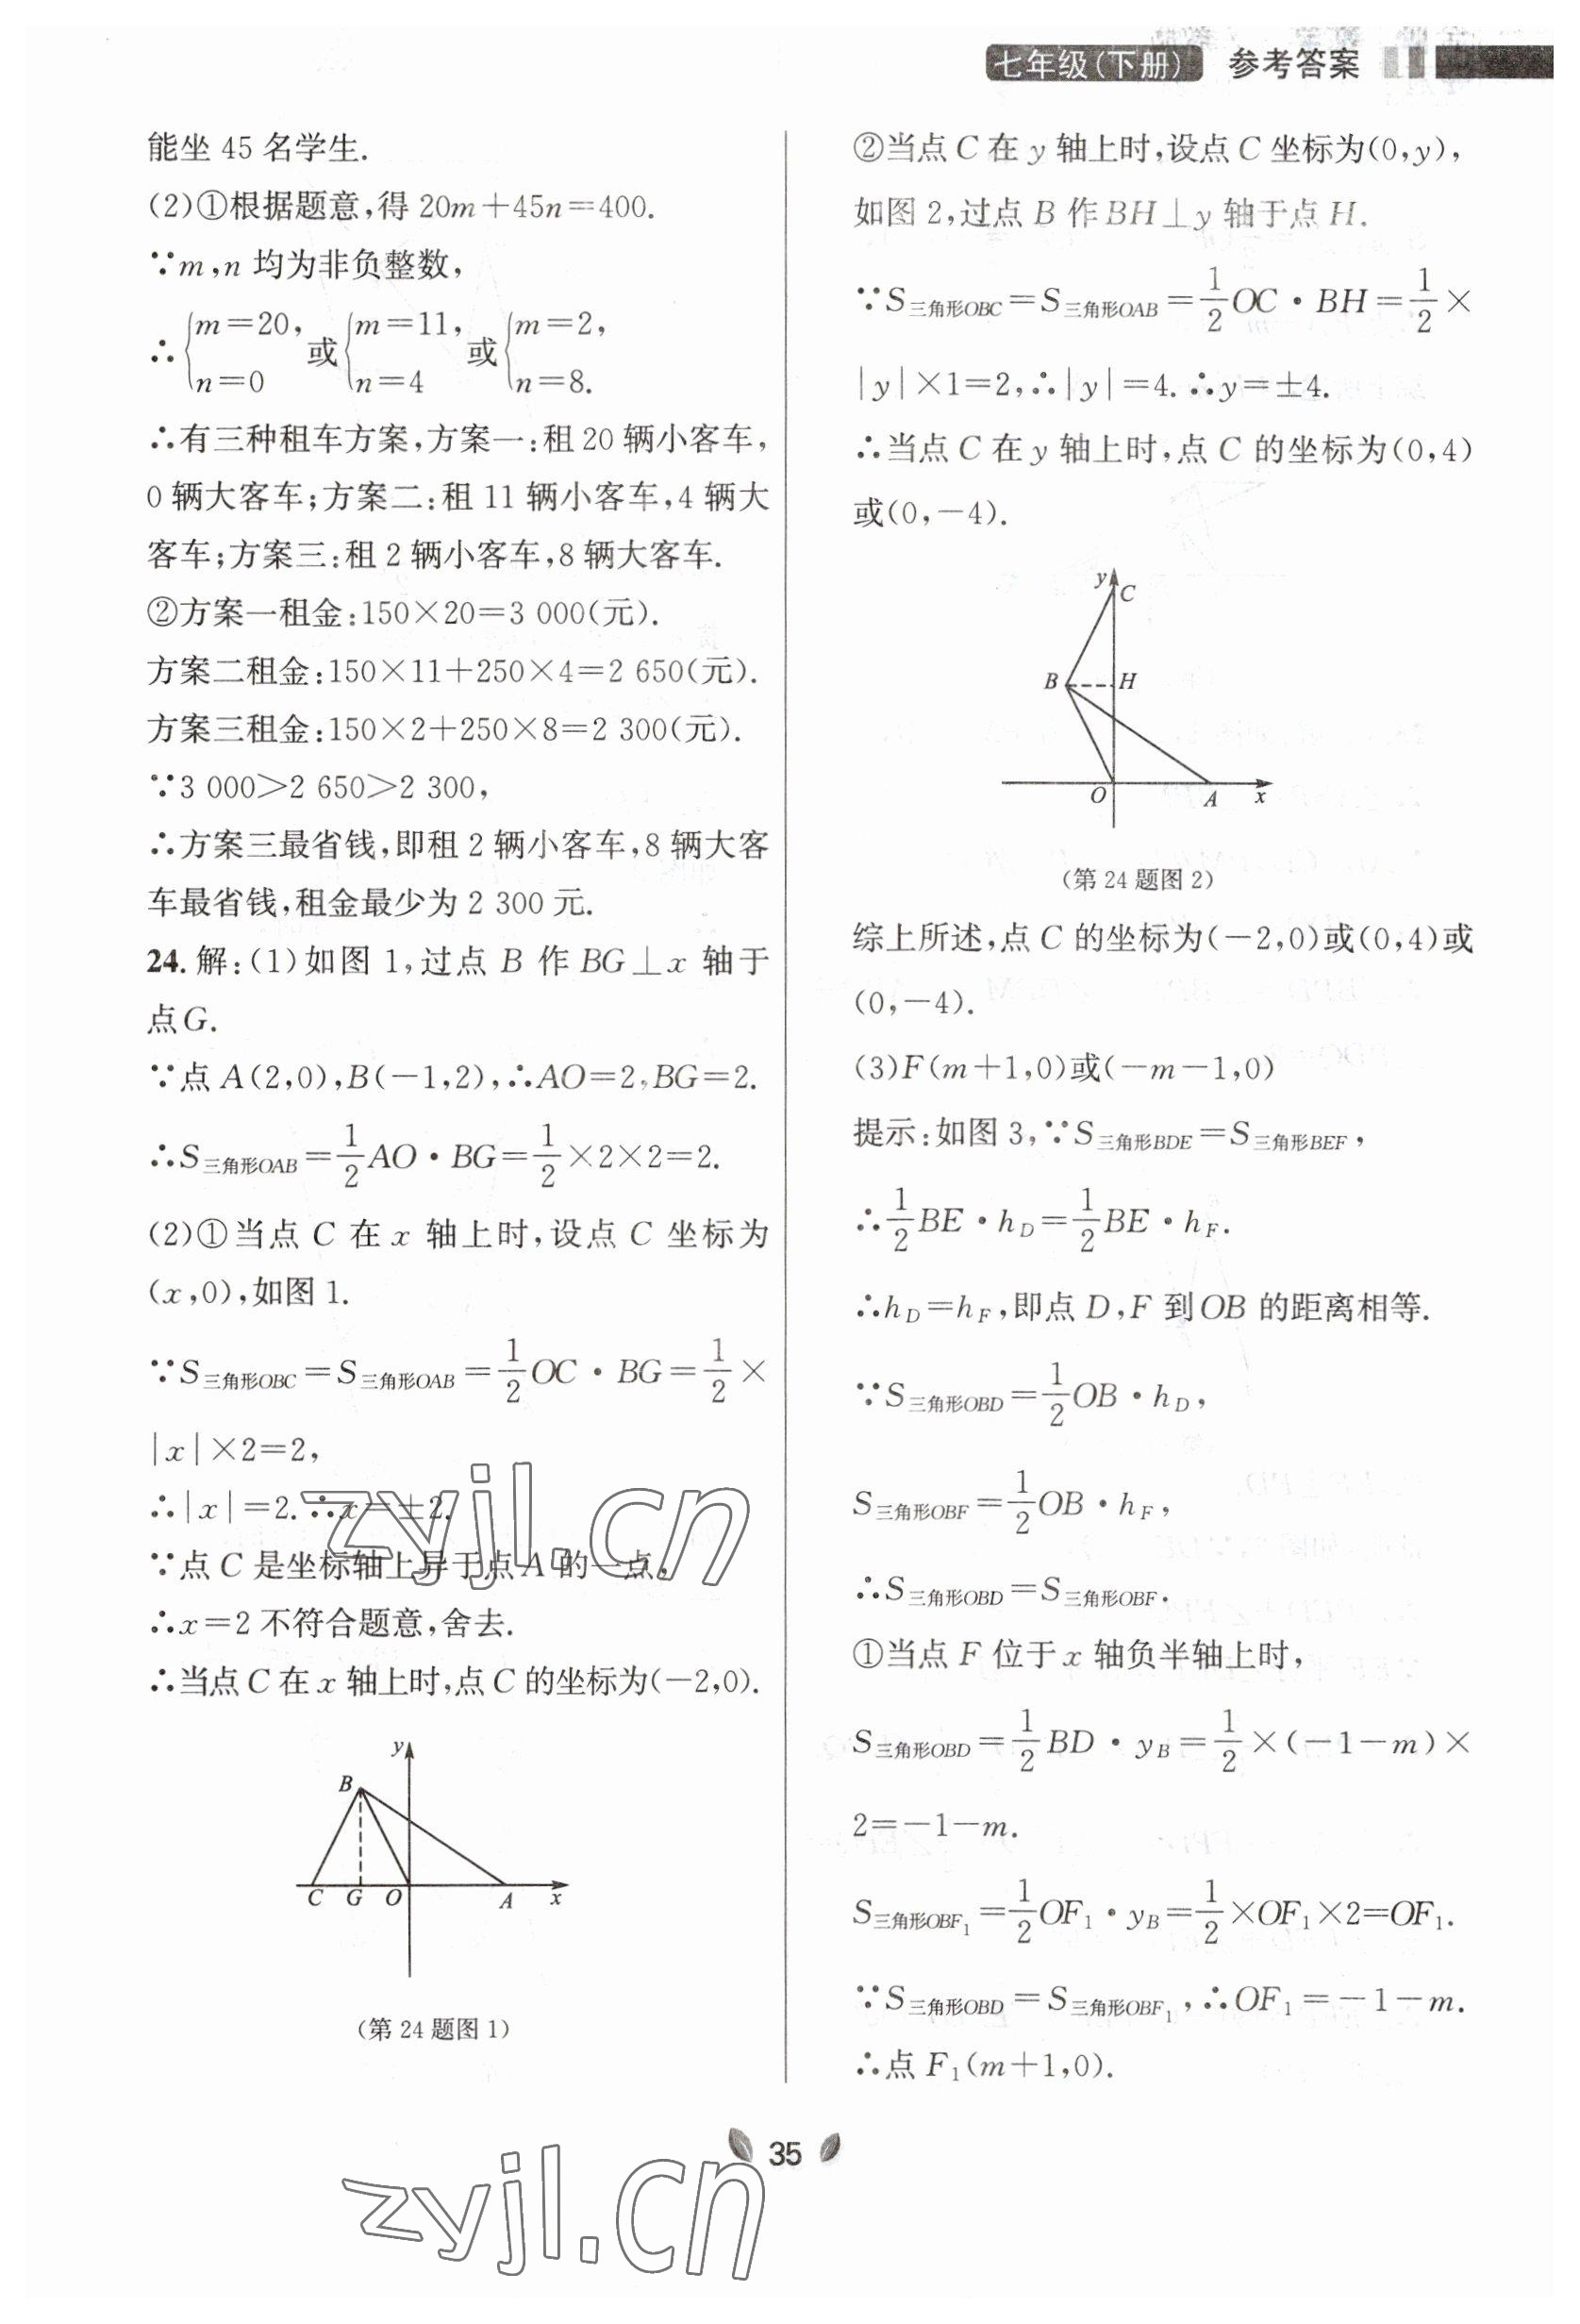 七年级(下册) 参考答案
能坐 45 名学生.
(2)①根据题意,得 20m+45n=400.
∵m,n 均为非负整数,
∴{m=20, n=0 或{m=11, n=4 或{m=2, n=8.
∴有三种租车方案,方案一:租 20 辆小客车,
0 辆大客车;方案二:租 11 辆小客车,4 辆大
客车;方案三:租 2 辆小客车,8 辆大客车.
②方案一租金:150×20=3 000(元).
方案二租金:150×11+250×4=2 650(元).
方案三租金:150×2+250×8=2 300(元).
∵3 000>2 650>2 300,
∴方案三最省钱,即租 2 辆小客车,8 辆大客
车最省钱,租金最少为 2 300 元.
24. 解:(1)如图 1,过点 B 作 BG⊥x 轴于
点G.
∵点 A(2,0),B(-1,2),∴AO=2,BG=2.
∴S三角形OAB=1/2AO·BG=1/2×2×2=2.
(2)①当点 C 在 x 轴上时,设点 C 坐标为
(x,0),如图 1.
∵S三角形OBC=S三角形OAB=1/2OC·BG=1/2×
|x|×2=2,
∴|x|=2.∴x=±2.
∵点 C 是坐标轴上异于点 A 的一点,
∴x=2 不符合题意,舍去.
∴当点 C 在 x 轴上时,点 C 的坐标为(-2,0).
y
B
C G O A x
(第 24 题图 1)
②当点 C 在 y 轴上时,设点 C 坐标为(0,y),
如图 2,过点 B 作 BH⊥y 轴于点 H.
∵S三角形OBC=S三角形OAB=1/2OC·BH=1/2×
|y|×1=2,∴|y|=4.∴y=±4.
∴当点 C 在 y 轴上时,点 C 的坐标为(0,4)
或(0,-4).
y C
B H
O A x
(第 24 题图 2)
综上所述,点 C 的坐标为(-2,0)或(0,4)或
(0,-4).
(3)F(m+1,0)或(-m-1,0)
提示:如图 3,∵S三角形BDE=S三角形BEF,
∴1/2BE·hD=1/2BE·hF.
∴hD=hF,即点 D,F 到OB 的距离相等.
∵S三角形OBD=1/2OB·hD,
S三角形OBF=1/2OB·hF,
∴S三角形OBD=S三角形OBF.
①当点 F 位于 x 轴负半轴上时,
S三角形OBD=1/2BD·yB=1/2×(-1-m)×
2=-1-m.
S三角形OBF₁=1/2OF₁·yB=1/2×OF₁×2=OF₁.
∵S三角形OBD=S三角形OBF₁,∴OF₁=-1-m.
∴点 F₁(m+1,0).
35
zyjl.cn
zyjl.cn